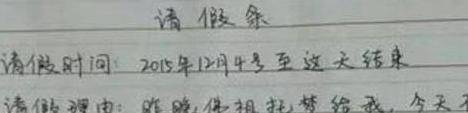 请假条
请假时间：2015年12月4号至这天结束
请假理由：昨晚佛祖托梦给我，今天不